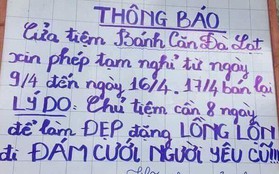 THÔNG BÁO
Cửa tiệm Bánh Căn Đa Lat
xin phép tạm nghỉ từ ngày
9/4 đến ngày 16/4. 17/4 bán lại
LÝ DO: Chủ tiệm cần 8 ngày
để làm ĐẸP đặng LỒNG LỘN
đi ĐÁM CƯỚI NGƯỜI YÊU CŨ!!!